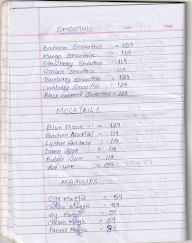 SMOOTHIE
Banana Smoothie = 129
Mango Smoothie = 119
Strawberry Smoothie 119
Chocolate Smoothie 119
Blueberry Smoothie = 129
Cranberry Smoothie = 129
Black currant Smoothie = 129
MOCKTAILS
Blue Moon = 129
Mocktail = 119
Lychee = 119
Green Apple = 119
Bubble Gum = 119
MAGGIES
Egg Maggie = 59
White Maggie = 59
Veg Maggie = 59
Chicken Maggie = 69
Paneer Maggie = 89